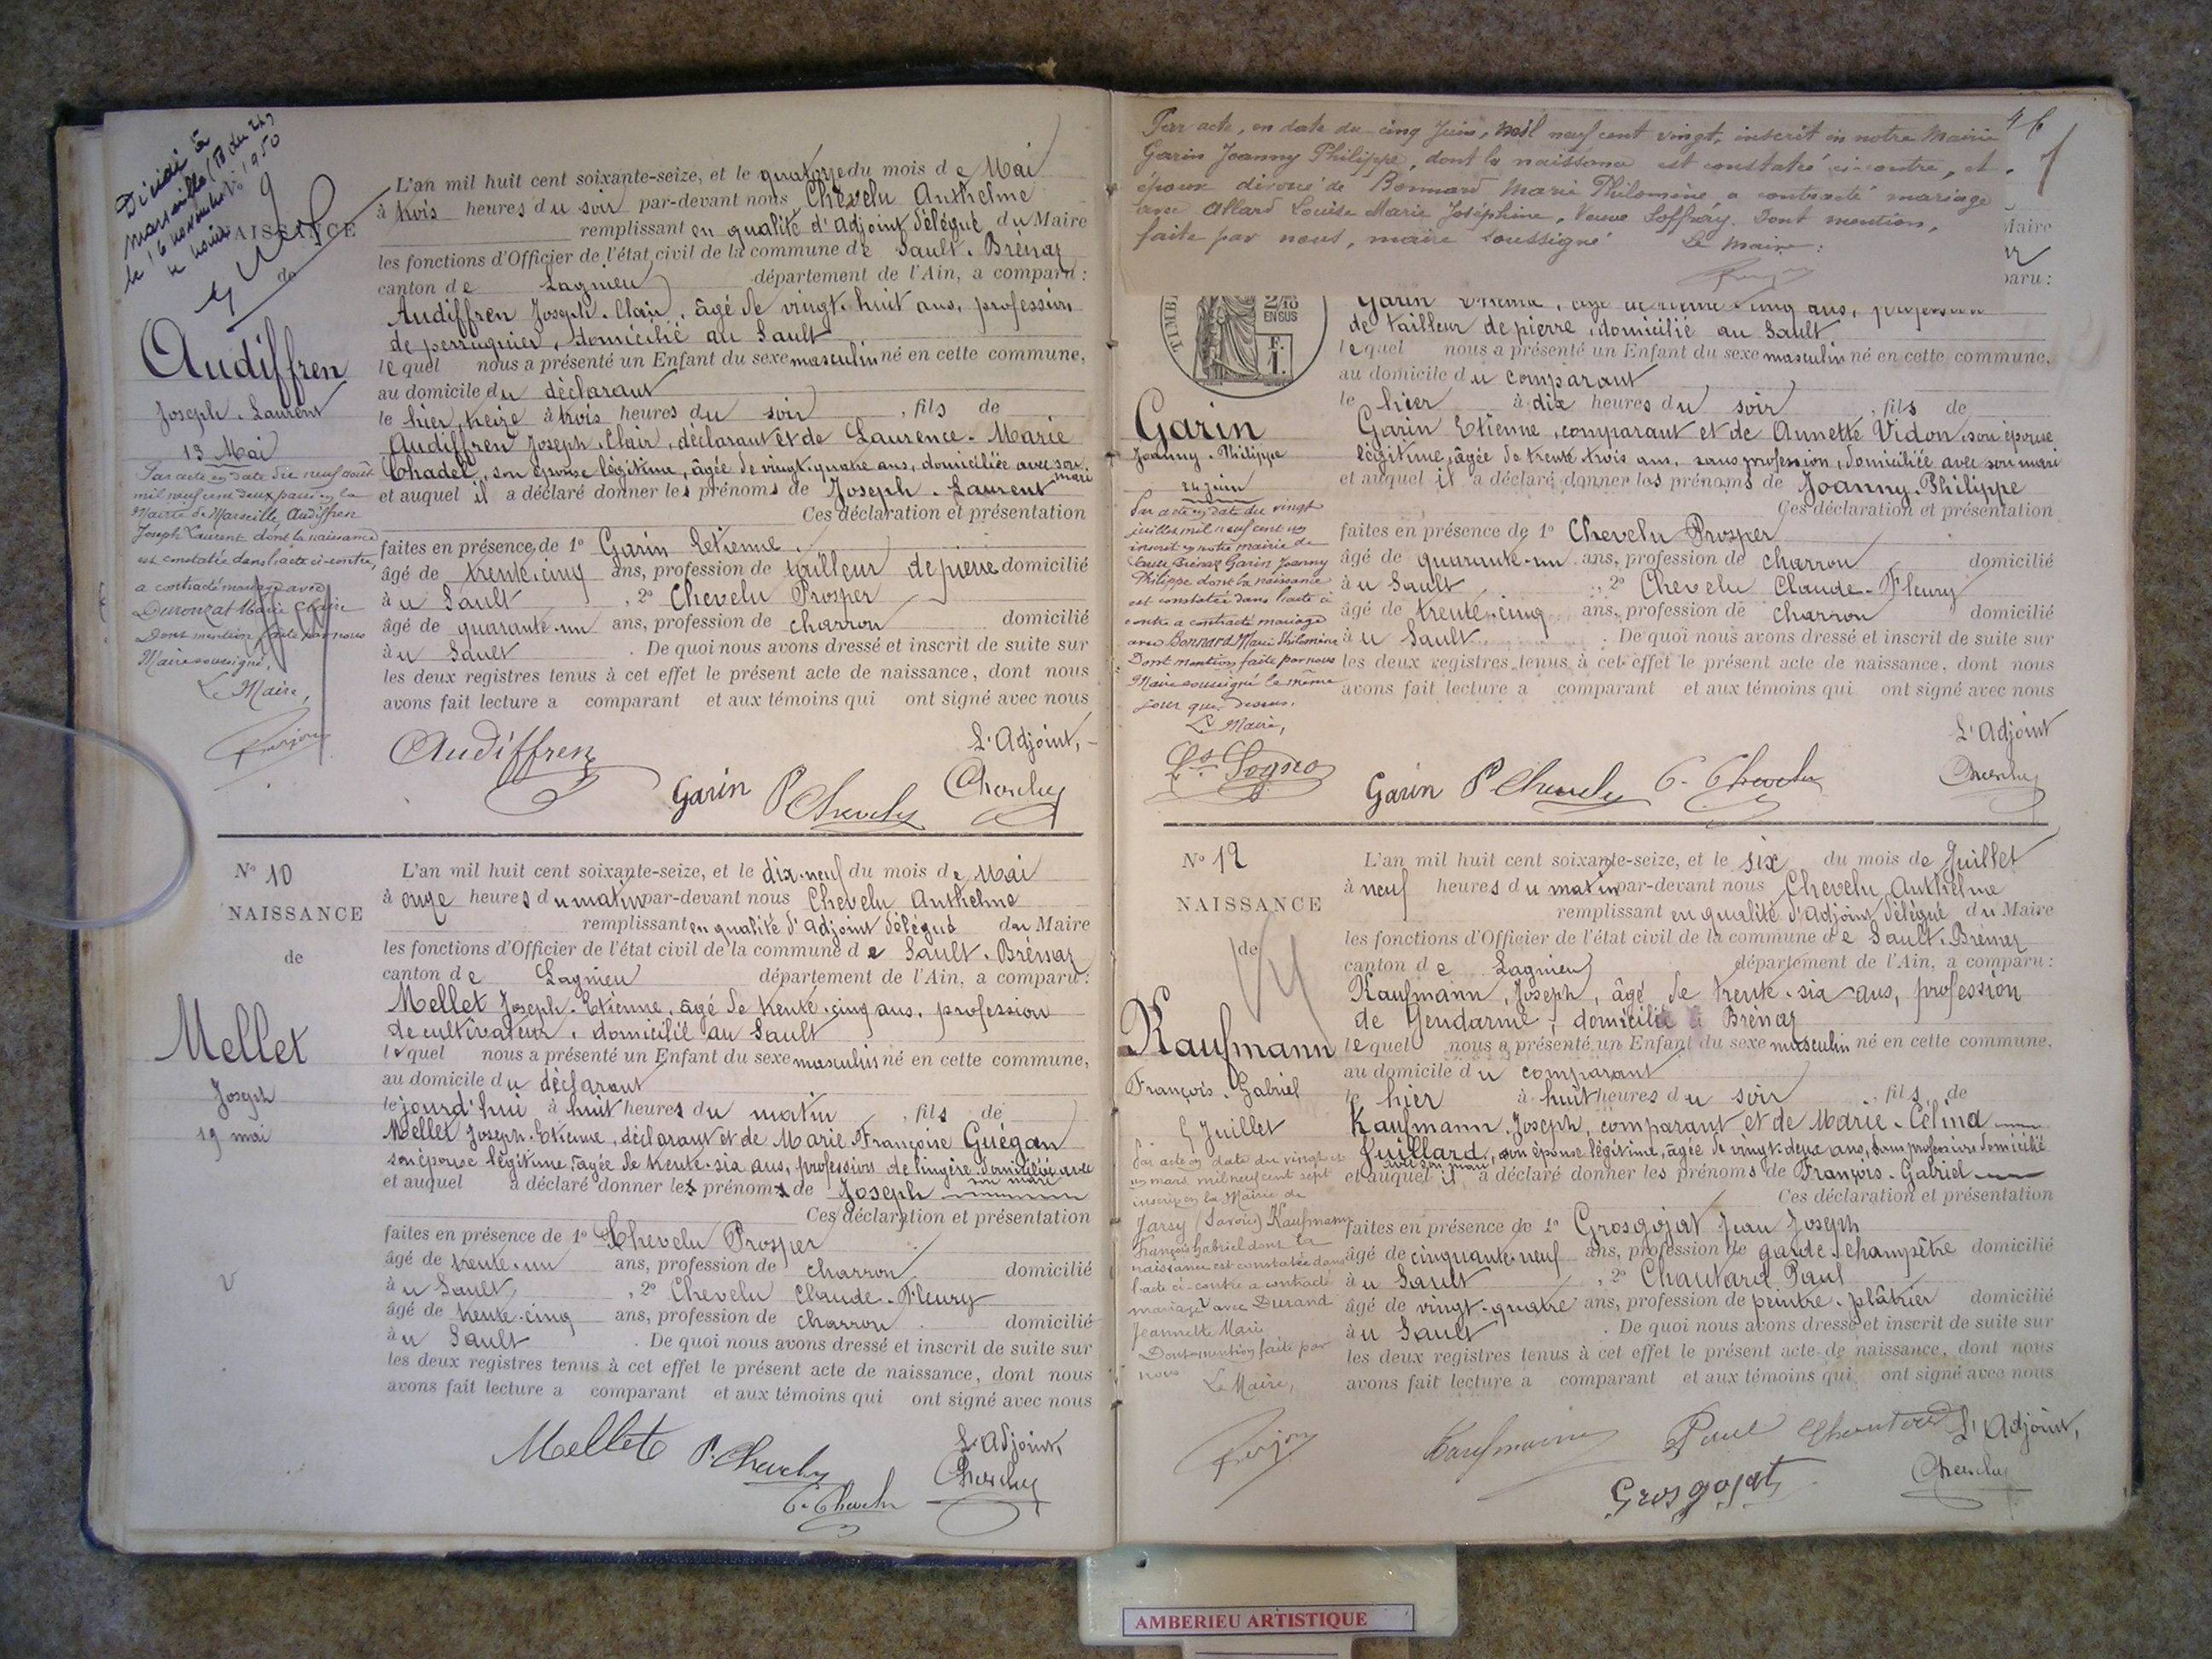 Décédé à
Marseille (B du Rh)
le 16 novembre 1950
le Maire
N° 9
NAISSANCE
de
Audiffren
Joseph. Laurent
13 Mai
Par acte en date du neuf août
mil neuf cent deux passé en la
Mairie de Marseille, Audiffren
Joseph Laurent dont la naissance
est constatée dans l'acte ci-contre,
a contracté mariage avec
Duronzat Marie Claire
Dont mention faite par nous
Maire soussigné,
Le Maire,
L'an mil huit cent soixante-seize, et le quatorze du mois de Mai
à trois heures du soir par-devant nous Chevelu Anthelme
remplissant en qualité d'adjoint délégué du Maire
les fonctions d'Officier de l'état civil de la commune de Sault-Brénaz
canton de Lagnieu département de l'Ain, a comparu :
Audiffren Joseph-Clair, âgé de vingt-huit ans, profession
de perruquier, domicilié au Sault
lequel nous a présenté un Enfant du sexe masculin né en cette commune,
au domicile du déclarant
le hier, treize à trois heures du soir, fils de
Audiffren Joseph-Clair, déclarant et de Laurence-Marie
Chadel, son épouse légitime, âgée de vingt-quatre ans, domiciliée avec son mari
et auquel il a déclaré donner les prénoms de Joseph-Laurent
Ces déclaration et présentation
faites en présence de 1° Garin Etienne,
âgé de trente-cinq ans, profession de tailleur de pierre domicilié
à u Sault, 2° Chevelu Prosper
âgé de quarante-un ans, profession de charron domicilié
à u Sault. De quoi nous avons dressé et inscrit de suite sur
les deux registres tenus à cet effet le présent acte de naissance, dont nous
avons fait lecture a comparant et aux témoins qui ont signé avec nous
L'Adjoint,
Audiffren
Garin P Chevelu Chevelu
N° 10
NAISSANCE
de
Mellet
Joseph
19 mai
V
L'an mil huit cent soixante-seize, et le dix-neuf du mois de Mai
à onze heures du matin par-devant nous Chevelu Anthelme
remplissant en qualité d'adjoint délégué du Maire
les fonctions d'Officier de l'état civil de la commune de Sault-Brénaz
canton de Lagnieu département de l'Ain, a comparu :
Mellet Joseph-Etienne, âgé de trente-cinq ans, profession
de cultivateur, domicilié au Sault
lequel nous a présenté un Enfant du sexe masculin né en cette commune,
au domicile du déclarant
le jourd'hui à huit heures du matin, fils de
Mellet Joseph-Etienne, déclarant et de Marie-Françoise Guégan
son épouse légitime, âgée de trente-six ans, profession de lingère domiciliée avec
son mari
et auquel a déclaré donner les prénoms de Joseph
Ces déclaration et présentation
faites en présence de 1° Chevelu Prosper
âgé de trente-un ans, profession de charron domicilié
à u Sault, 2° Chevelu Claude-Fleury
âgé de trente-cinq ans, profession de charron domicilié
à u Sault. De quoi nous avons dressé et inscrit de suite sur
les deux registres tenus à cet effet le présent acte de naissance, dont nous
avons fait lecture a comparant et aux témoins qui ont signé avec nous
L'Adjoint,
Mellet P. Chevelu Chevelu
C. Chevelu
46
Par acte, en date du cinq Juin, mil neuf cent vingt, inscrit en notre Mairie
Garin Joanny Philippe, dont la naissance est constatée ci-contre, et
époux divorcé de Bonnard Marie Philomène, a contracté mariage
avec Allard Louise Marie Joséphine, Veuve Soffray. Dont mention,
faite par nous, maire soussigné Le Maire :
Maire
paru :
TIMBRE
2/10
EN SUS
F.
1.
Garin
Joanny. Philippe
24 juin
Par acte en date du vingt
juillet mil neuf cent un
inscrit en notre mairie de
Sault Brénaz Garin Joanny
Philippe dont la naissance
est constatée dans l'acte ci
contre a contracté mariage
avec Bonnard Marie Philomène
Dont mention faite par nous
Maire soussigné le même
jour que dessus.
Le Maire,
Garin Etienne, âgé de trente-cinq ans, profession
de tailleur de pierre, domicilié au Sault
lequel nous a présenté un Enfant du sexe masculin né en cette commune,
au domicile du comparant
le hier à dix heures du soir, fils de
Garin Etienne, comparant et de Annette Vidon, son épouse
légitime, âgée de trente-trois ans, sans profession, domiciliée avec son mari
et auquel il a déclaré donner les prénoms de Joanny-Philippe
Ces déclaration et présentation
faites en présence de 1° Chevelu Prosper
âgé de quarante-un ans, profession de charron domicilié
à u Sault, 2° Chevelu Claude-Fleury
âgé de trente-cinq ans, profession de charron domicilié
à u Sault. De quoi nous avons dressé et inscrit de suite sur
les deux registres tenus à cet effet le présent acte de naissance, dont nous
avons fait lecture a comparant et aux témoins qui ont signé avec nous
L'Adjoint
Garin P Chevelu C. Chevelu Chevelu
N° 12
NAISSANCE
de
Kaufmann
François. Gabriel
5 Juillet
Par acte en date du vingt et
un mars mil neuf cent sept
inscrit en la Mairie de
Jarsy (Savoie) Kaufmann
François Gabriel dont la
naissance est constatée dans
l'acte ci-contre a contracté
mariage avec Durand
Jeannette Marie
Dont mention faite par
nous
Le Maire,
L'an mil huit cent soixante-seize, et le six du mois de Juillet
à neuf heures du matin par-devant nous Chevelu Anthelme
remplissant en qualité d'adjoint délégué du Maire
les fonctions d'Officier de l'état civil de la commune de Sault-Brénaz
canton de Lagnieu département de l'Ain, a comparu :
Kaufmann, Joseph, âgé de trente-six ans, profession
de Gendarme, domicilié à Brénaz
lequel nous a présenté un Enfant du sexe masculin né en cette commune,
au domicile du comparant
le hier à huit heures du soir, fils de
Kaufmann Joseph, comparant et de Marie-Célina
Guillard, son épouse légitime, âgée de vingt-deux ans, sans profession domicilié
avec son mari
et auquel il a déclaré donner les prénoms de François-Gabriel
Ces déclaration et présentation
faites en présence de 1° Grosgojat Jean Joseph
âgé de cinquante-neuf ans, profession de garde-champêtre domicilié
à u Sault, 2° Chautard Paul
âgé de vingt-quatre ans, profession de peintre-plâtrier domicilié
à u Sault. De quoi nous avons dressé et inscrit de suite sur
les deux registres tenus à cet effet le présent acte de naissance, dont nous
avons fait lecture a comparant et aux témoins qui ont signé avec nous
Kaufmann Paul Chautard L'Adjoint,
Grosgojat Chevelu
AMBERIEU ARTISTIQUE